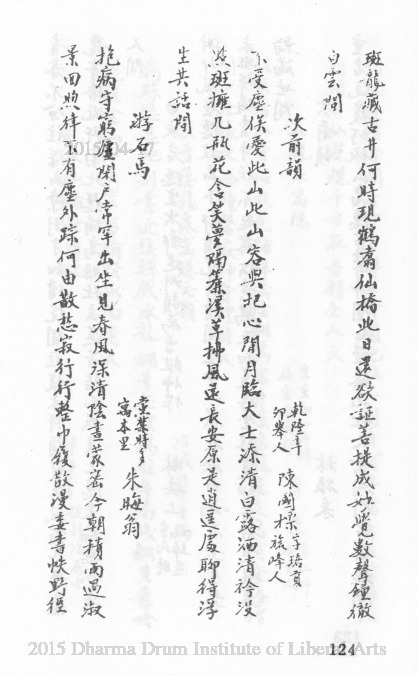 斑龍藏古井何時現鶴翥仙橋此日還欲証菩提成妙覺數聲鐘徹
白雲間
次前韻
乾隆辛卯舉人 陳國樑 字琚貢 後峰人
不受塵俟愛此山此山容與把心閒月臨大士添清白露洒清衿沒
點斑擁几瓶花含笑夢隔簾溪草掃風還長安原是逍遥處聊得浮
生共話間
游石馬
童業時多寓本里 朱晦翁
抱病守窮廬閉戶常罕出坐見春風深清陰晝蒙密今朝積雨過淑
景回煦律不有塵外踪何由散愁寂行行整巾履散漫委書帙野徑
2015 Dharma Drum Institute of Liberal Arts
124